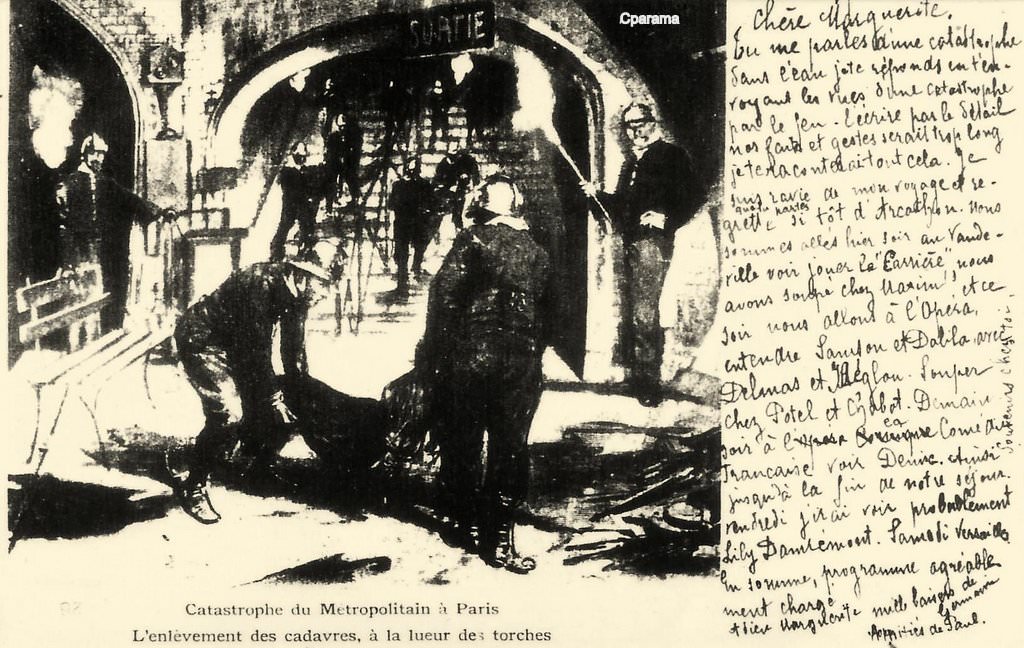 SORTIE
Cparama
Catastrophe du Métropolitain à Paris
L'enlèvement des cadavres, à la lueur des torches
Chère Marguerite.
Tu me parles d'une catastrophe
dans l'eau je te réponds en t'en-
voyant les vues d'une catastrophe
par le feu. T'écrire par le détail
nos faits et gestes serait trop long
je te raconterai tout cela. Je
suis ravie de mon voyage et re-
grette si tôt d'Arcachon. Nous
sommes allés hier soir au Vaude-
ville voir jouer la "Carrière", nous
avons soupé chez Maxim's, et ce
soir nous allons à l'Opéra,
entendre Samson et Dalila, avec
Delmas et Héglon. Souper
chez Potel et Chabot. Demain
soir à la Comédie
Française voir Denise. Ainsi
jusqu'à la fin de notre séjour.
vendredi j'irai voir probablement
Lily Damrémont. Samedi Versailles
En somme, programme agréable
ment chargé.
Adieu Marguerite mille baisers de
Germaine
Amitiés de Paul.
Souvenirs chez toi.